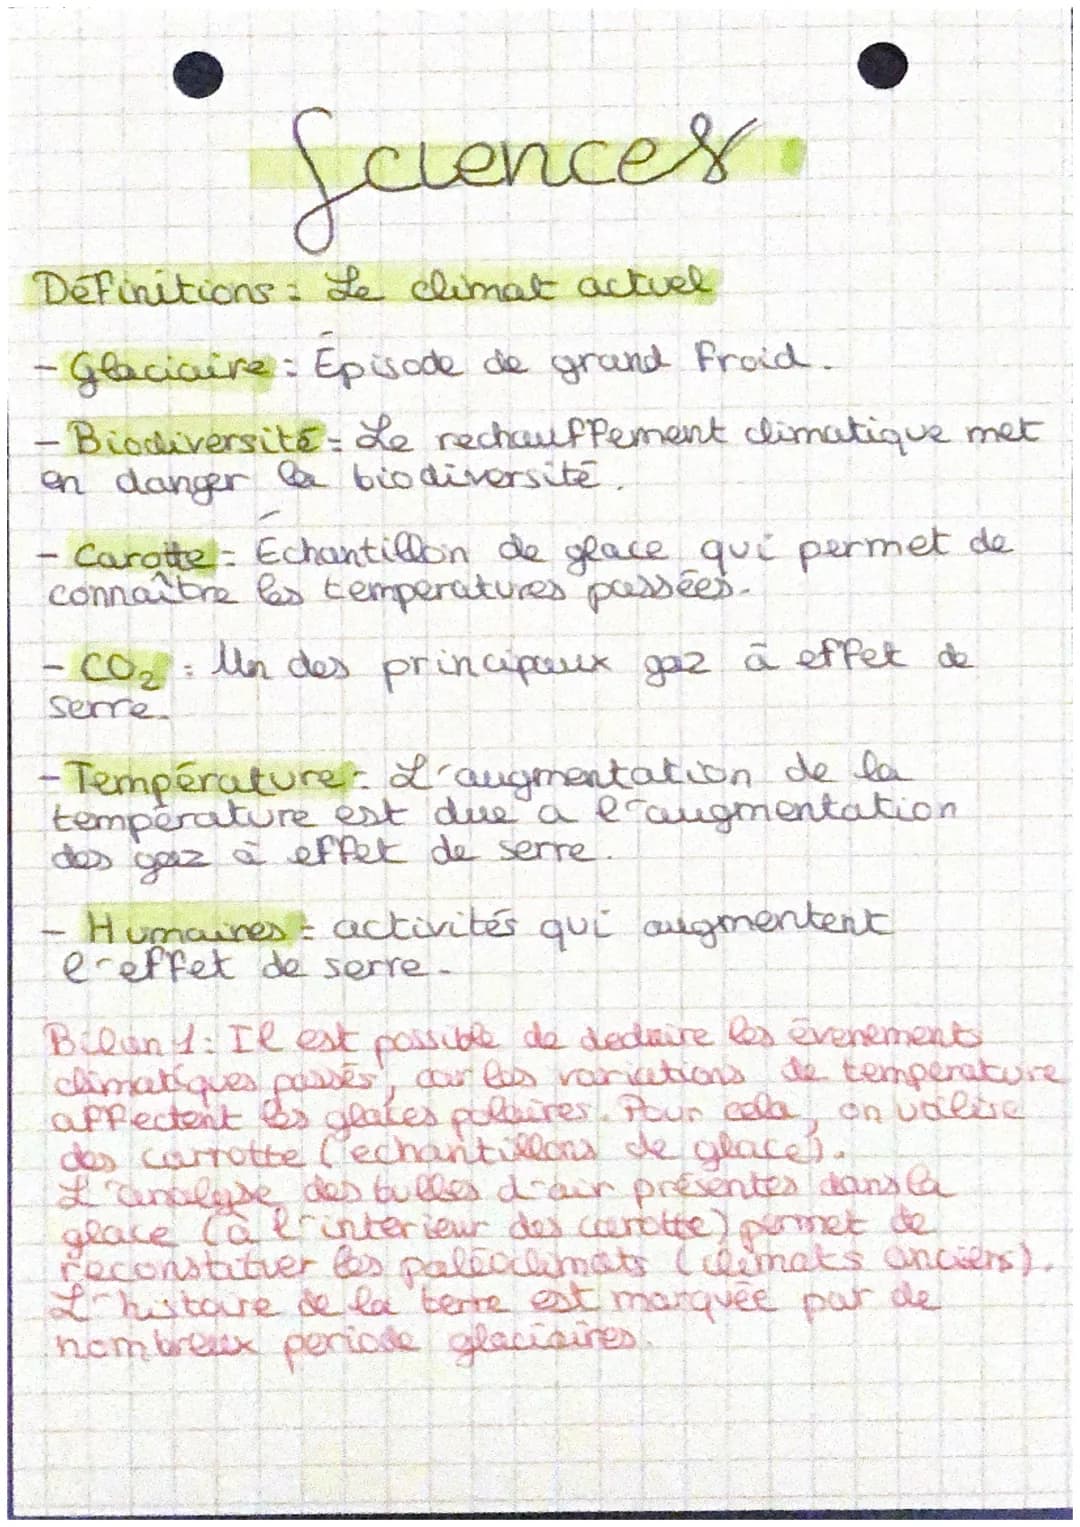 Sciences
Définitions : Le climat actuel
- Glaciaire : Épisode de grand froid.
- Biodiversité : Le rechauffement climatique met
en danger la biodiversité.
- Carotte : Échantillon de glace qui permet de
connaître les temperatures passées.
- CO₂ : Un des principaux gaz à effet de
serre.
- Température : L'augmentation de la
température est due a l'augmentation
des gaz à effet de serre.
- Humaines : activités qui augmentent
l'effet de serre.
Bilan 1 : Il est possible de deduire les évenements
climatiques passés, car les variations de temperature
affectent les glaces polaires. Pour cela, on utilise
des carrotte (echantillons de glace).
L'analyse des bulles d'air présentes dans la
glace (à l'interieur des carotte) permet de
reconstituer les paléoclimats (climats anciens).
L'histoire de la terre est marquée par de
nombreux periode glaciaires.